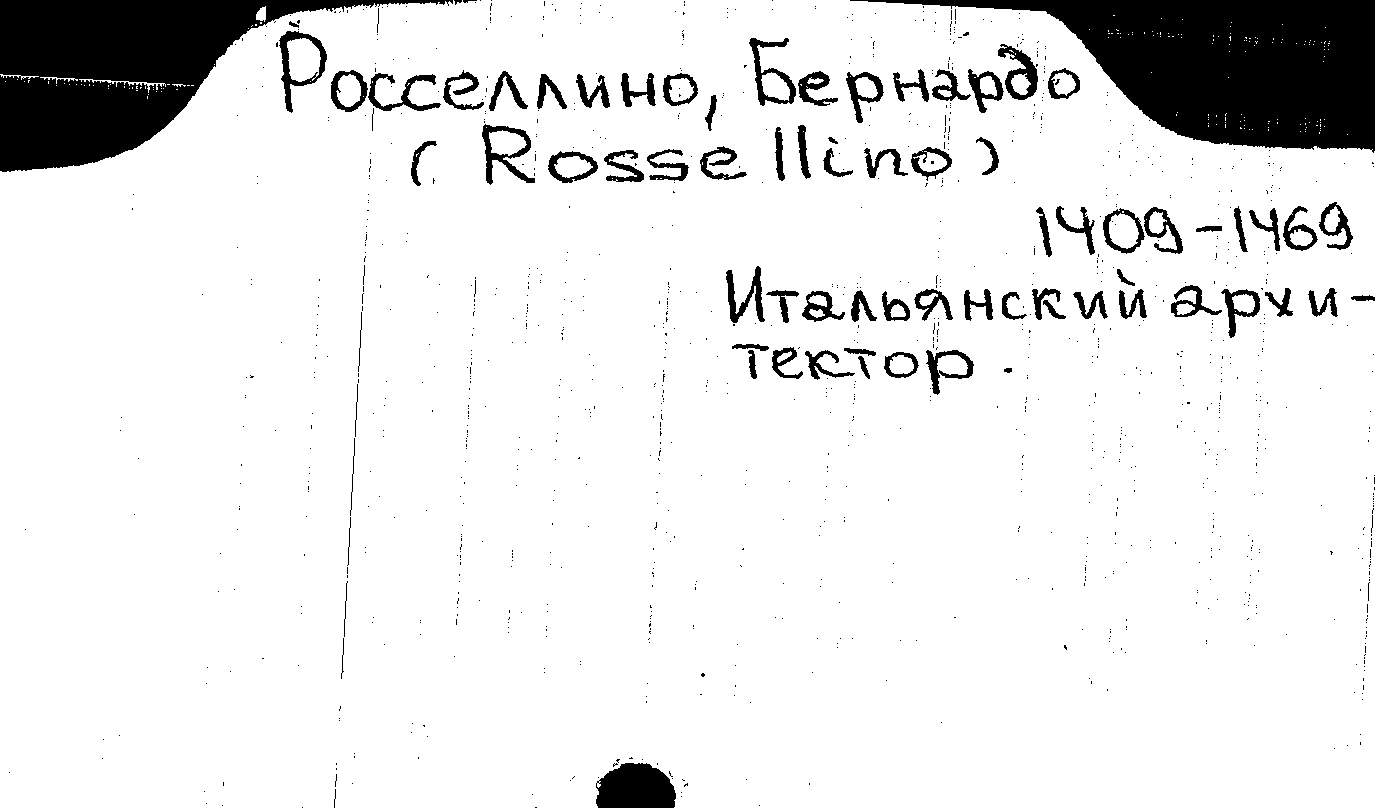 Росселлино, Бернардо
(Rossellino)
1409-1469
Итальянский архи-
тектор.